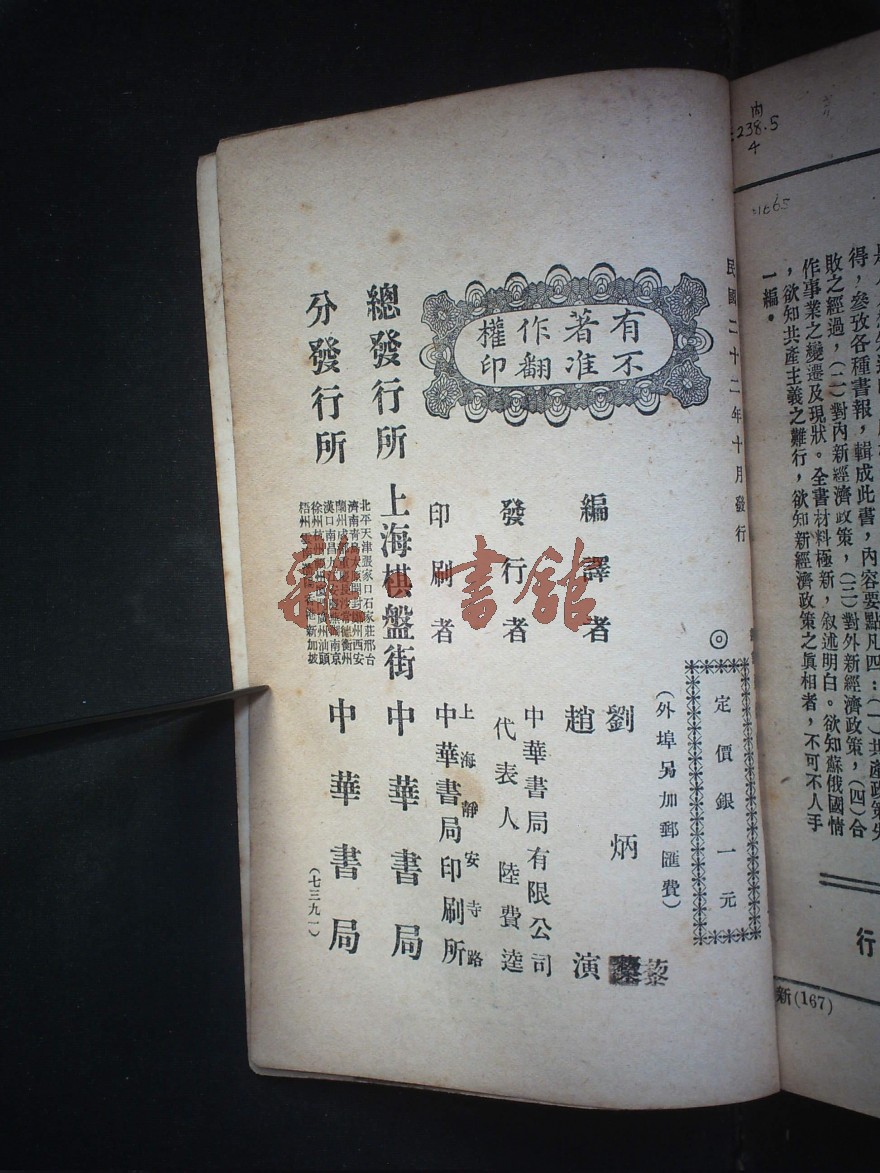 內
238.5
4
得，參攷各種書報，輯成此書，內容要點凡四：(一)共產政策失
敗之經過，(二)對內新經濟政策，(三)對外新經濟政策，(四)合
作事業之變遷及現狀。全書材料極新，叙述明白。欲知蘇俄國情
，欲知共產主義之難行，欲知新經濟政策之眞相者，不可不人手
一編。
行
新(167)
民國二十二年十月發行
◎
定價銀一元
(外埠另加郵匯費)
有著作權
不准翻印
編譯者
劉炳藜
趙演
發行者
中華書局有限公司
代表人陸費逵
印刷者
上海靜安寺路
中華書局印刷所
總發行所
上海棋盤街
中華書局
分發行所
北平天津張家口石家莊邢台
中華書局
(七三九一)
彩書館